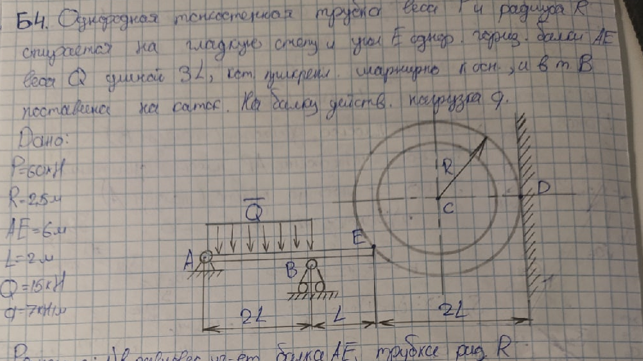 Б4. Однородная тонкостенная трубка веса P и радиуса R
опирается на гладкую стену и угол E однор. гориз. балки AE
веса Q длиной 3L, кот. прикрепл. шарнирно к осн., и в т. B
поставлена на каток. На балку действ. нагрузка q.
Дано:
P=60кН
R=2,5м
AE=6м
L=2м
Q=15кН
q=7кН/м
Q
A
B
E
R
C
D
2L
L
2L
балка AE, трубка рад R